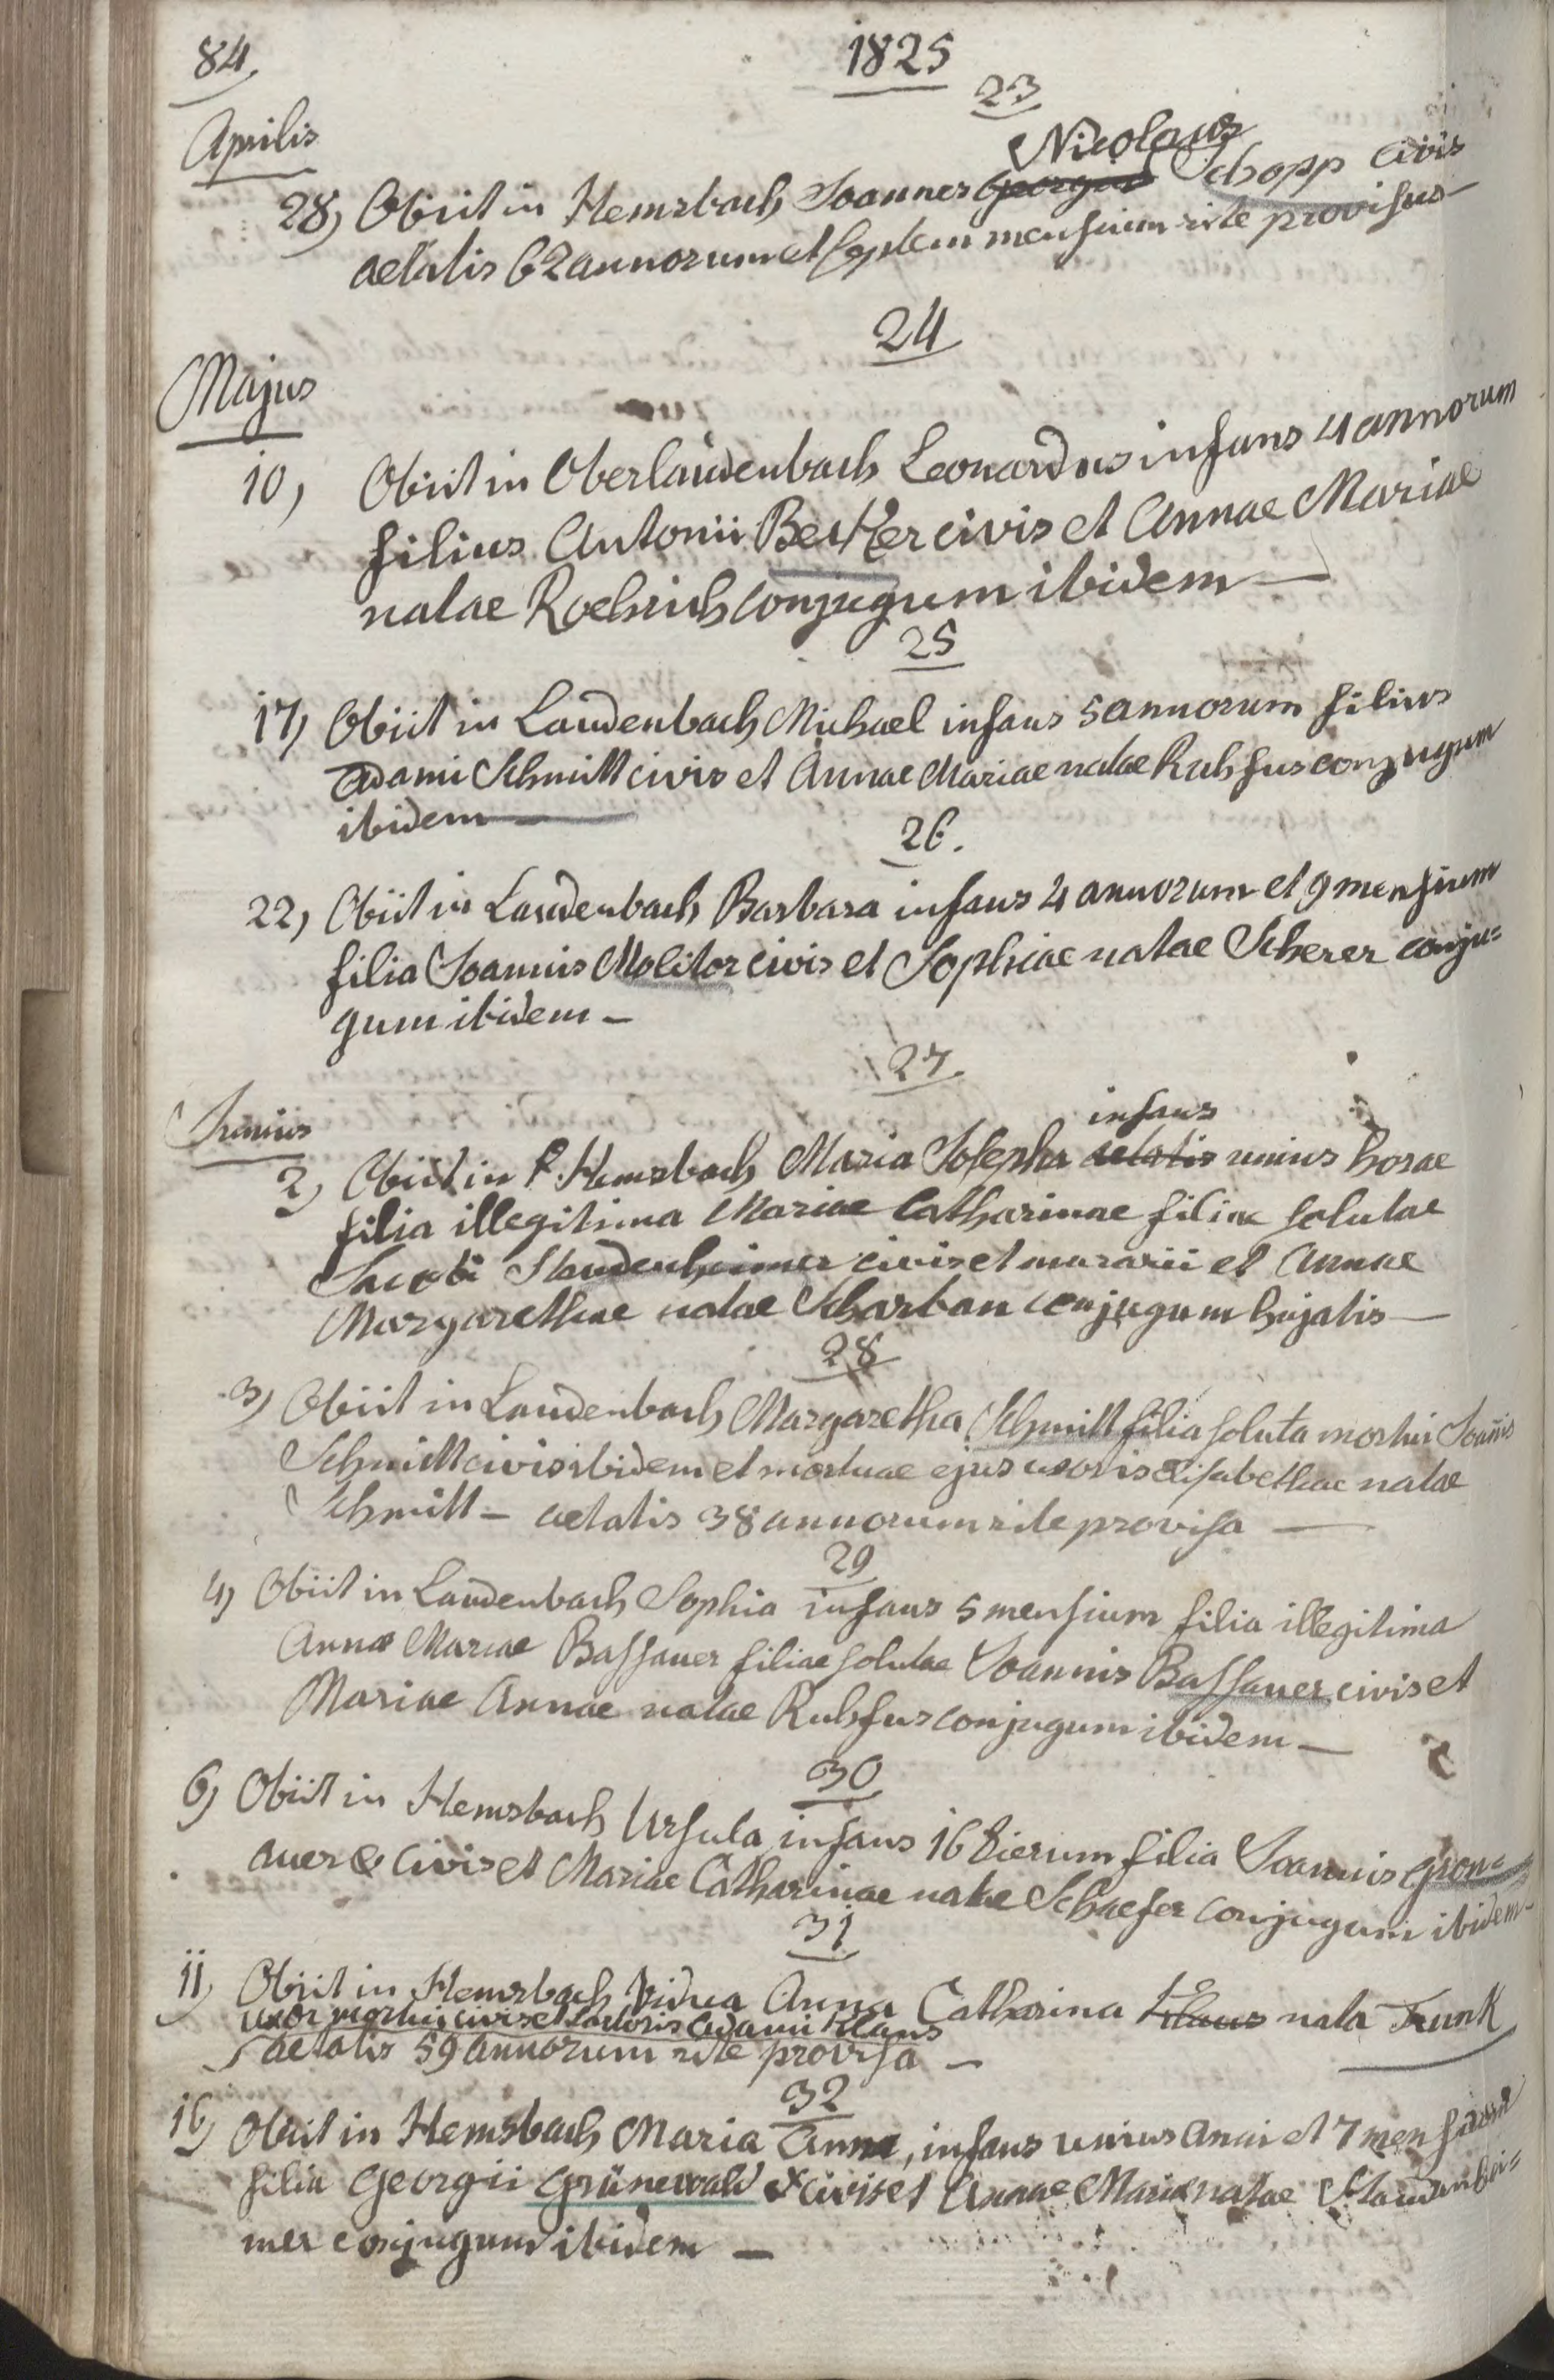 84.
1825
23
Aprilis
Nicolaus
28) Obiit in Hemsbach Joannes Georgius Schopp civis
aetatis 62 annorum et septem mensium rite provisus
24
Majus
10, Obiit in Oberlaudenbach Leonardus infans 4 annorum
filius Antonii Becker civis et Annae Mariae
natae Roehrich conjugum ibidem —
25
17) Obiit in Laudenbach Michael infans 5 annorum filius
Adami Schmitt civis et Annae Mariae natae Ruhfus conjugum
ibidem —
26.
22, Obiit in Laudenbach Barbara infans 4 annorum et 9 mensium
filia Joannis Molitor civis et Sophiae natae Scherer conju=
gum ibidem —
27
Junius
infans
2) Obiit in Hemsbach Maria Josepha aetatis unius horae
filia illegitima Mariae Catharinae filiae solutae
Jacobi Staudenheimer civis et murarii et Annae
Margarethae natae Scharban conjugum hujatis —
28
3) Obiit in Laudenbach Margaretha Schmitt filia soluta mortui Joañis
Schmitt civis ibidem et mortuae ejus uxoris Elisabethae natae
Schmitt — aetatis 38 annorum rite provisa —
29
4) Obiit in Laudenbach Sophia infans 5 mensium filia illegitima
Annae Mariae Bassauer filiae solutae Joannis Bassauer civis et
Mariae Annae natae Ruhfus conjugum ibidem —
30
6) Obiit in Hemsbach Ursula infans 16 dierum filia Joannis Gron=
auer civis et Mariae Catharinae natae Schaefer conjugum ibidem —
31
11) Obiit in Hemsbach Vidua Anna Catharina Klaus nata Trunk
uxor mortui civis et sartoris Adami Klaus
aetatis 59 annorum rite provisa —
32
16) Obiit in Hemsbach Maria Anna, infans unius anni et 7 mensium
filia Georgii Grünewald civis et Annae Mariae natae Staudenhei=
mer conjugum ibidem —